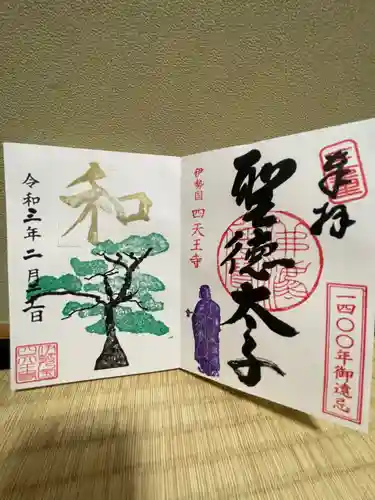 奉拝
聖徳太子
一四〇〇年御遠忌
伊勢国 四天王寺
和
令和三年二月二十二日